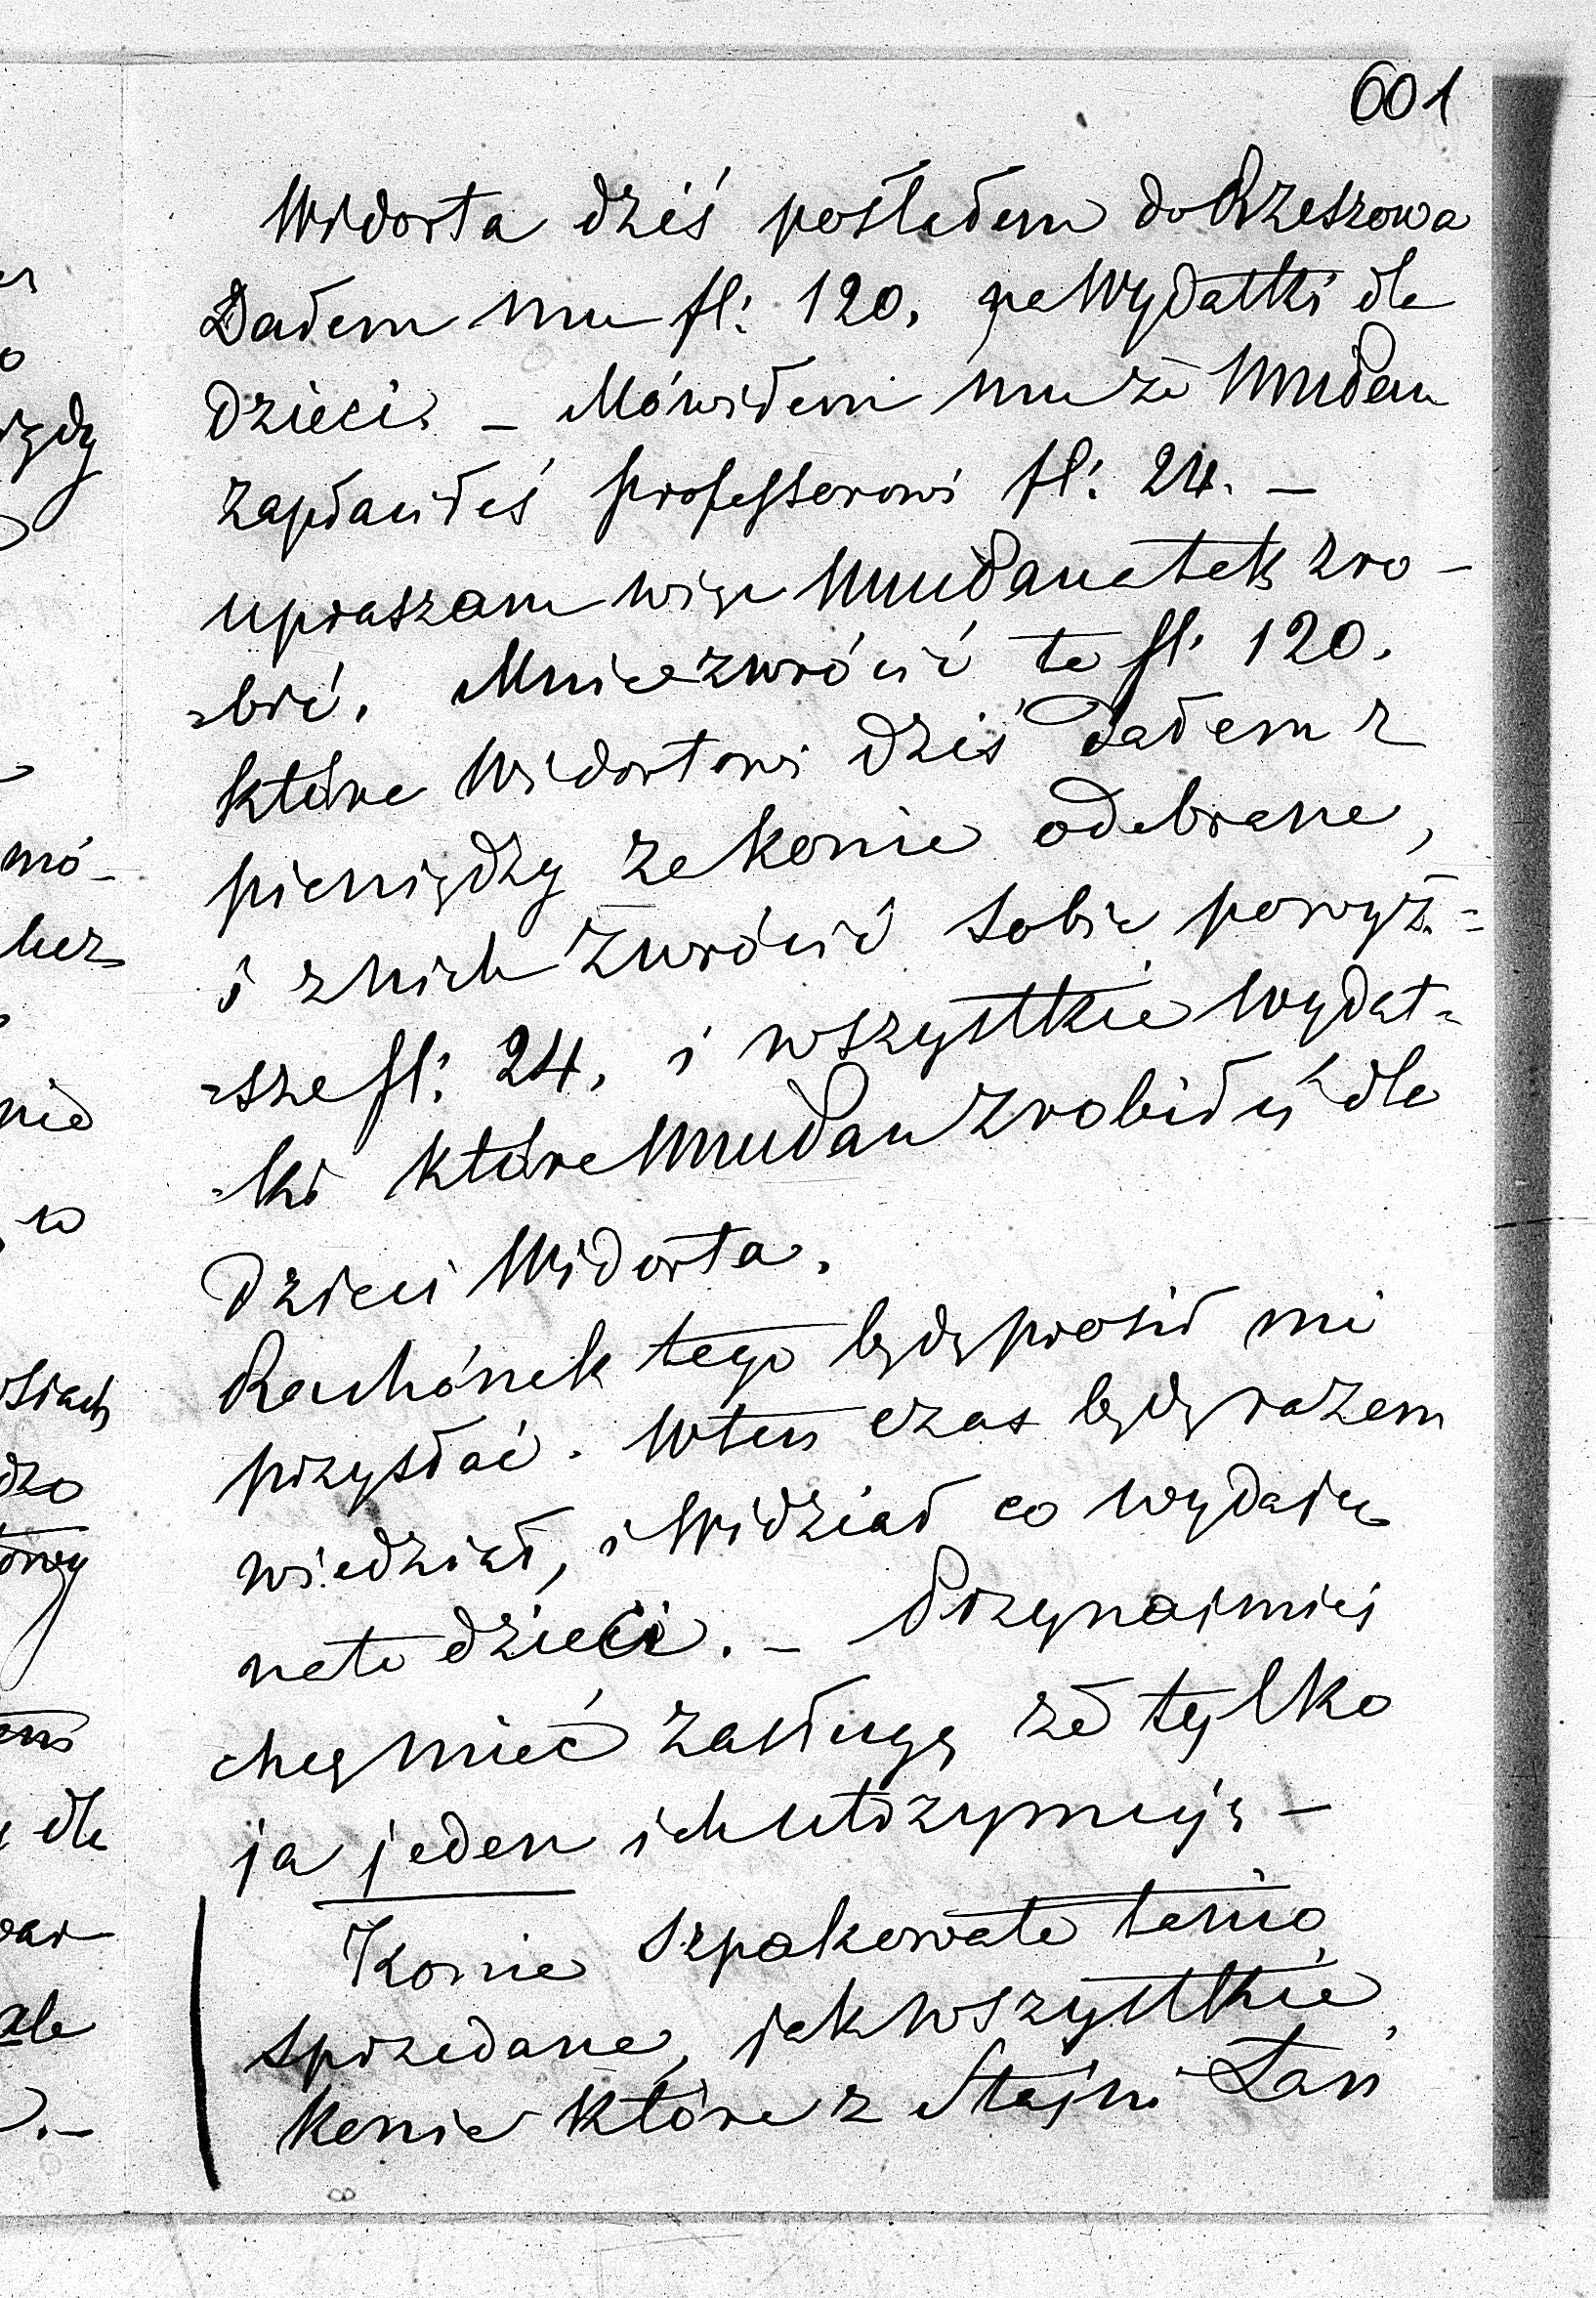 601
Widorta dziś posłałem do Rzeszowa
Dałem mu fl: 120. na Wydatki dla
Dzieci. – Mówiłem mu że WmuPan
zapłaciłeś professorowi fl: 24. –
upraszam więc WmuPana tak zro-
=bić. Mnie zwrócić te fl: 120.
które Widortowi dziś Dałem z
pieniędzy za konie odebrane,
i z nich Zwrócić sobie powyż=
=sze fl: 24. i wszystkie Wydat=
=ki które WmuPan zrobiłeś dla
Dzieci Widorta.
Rachónek tego będę prosił mi
przysłać. Wten czas będę razem
wiedział, i Widział co wydaję
na te dzieci. – Przynajmiej
chcę mieć zasługę że tylko
ja jeden ich utrzymuję –
Konie szpakowate tanio
sprzedane, jak wszystkie,
konie które z Stajni Łan
mó-
dla
nie